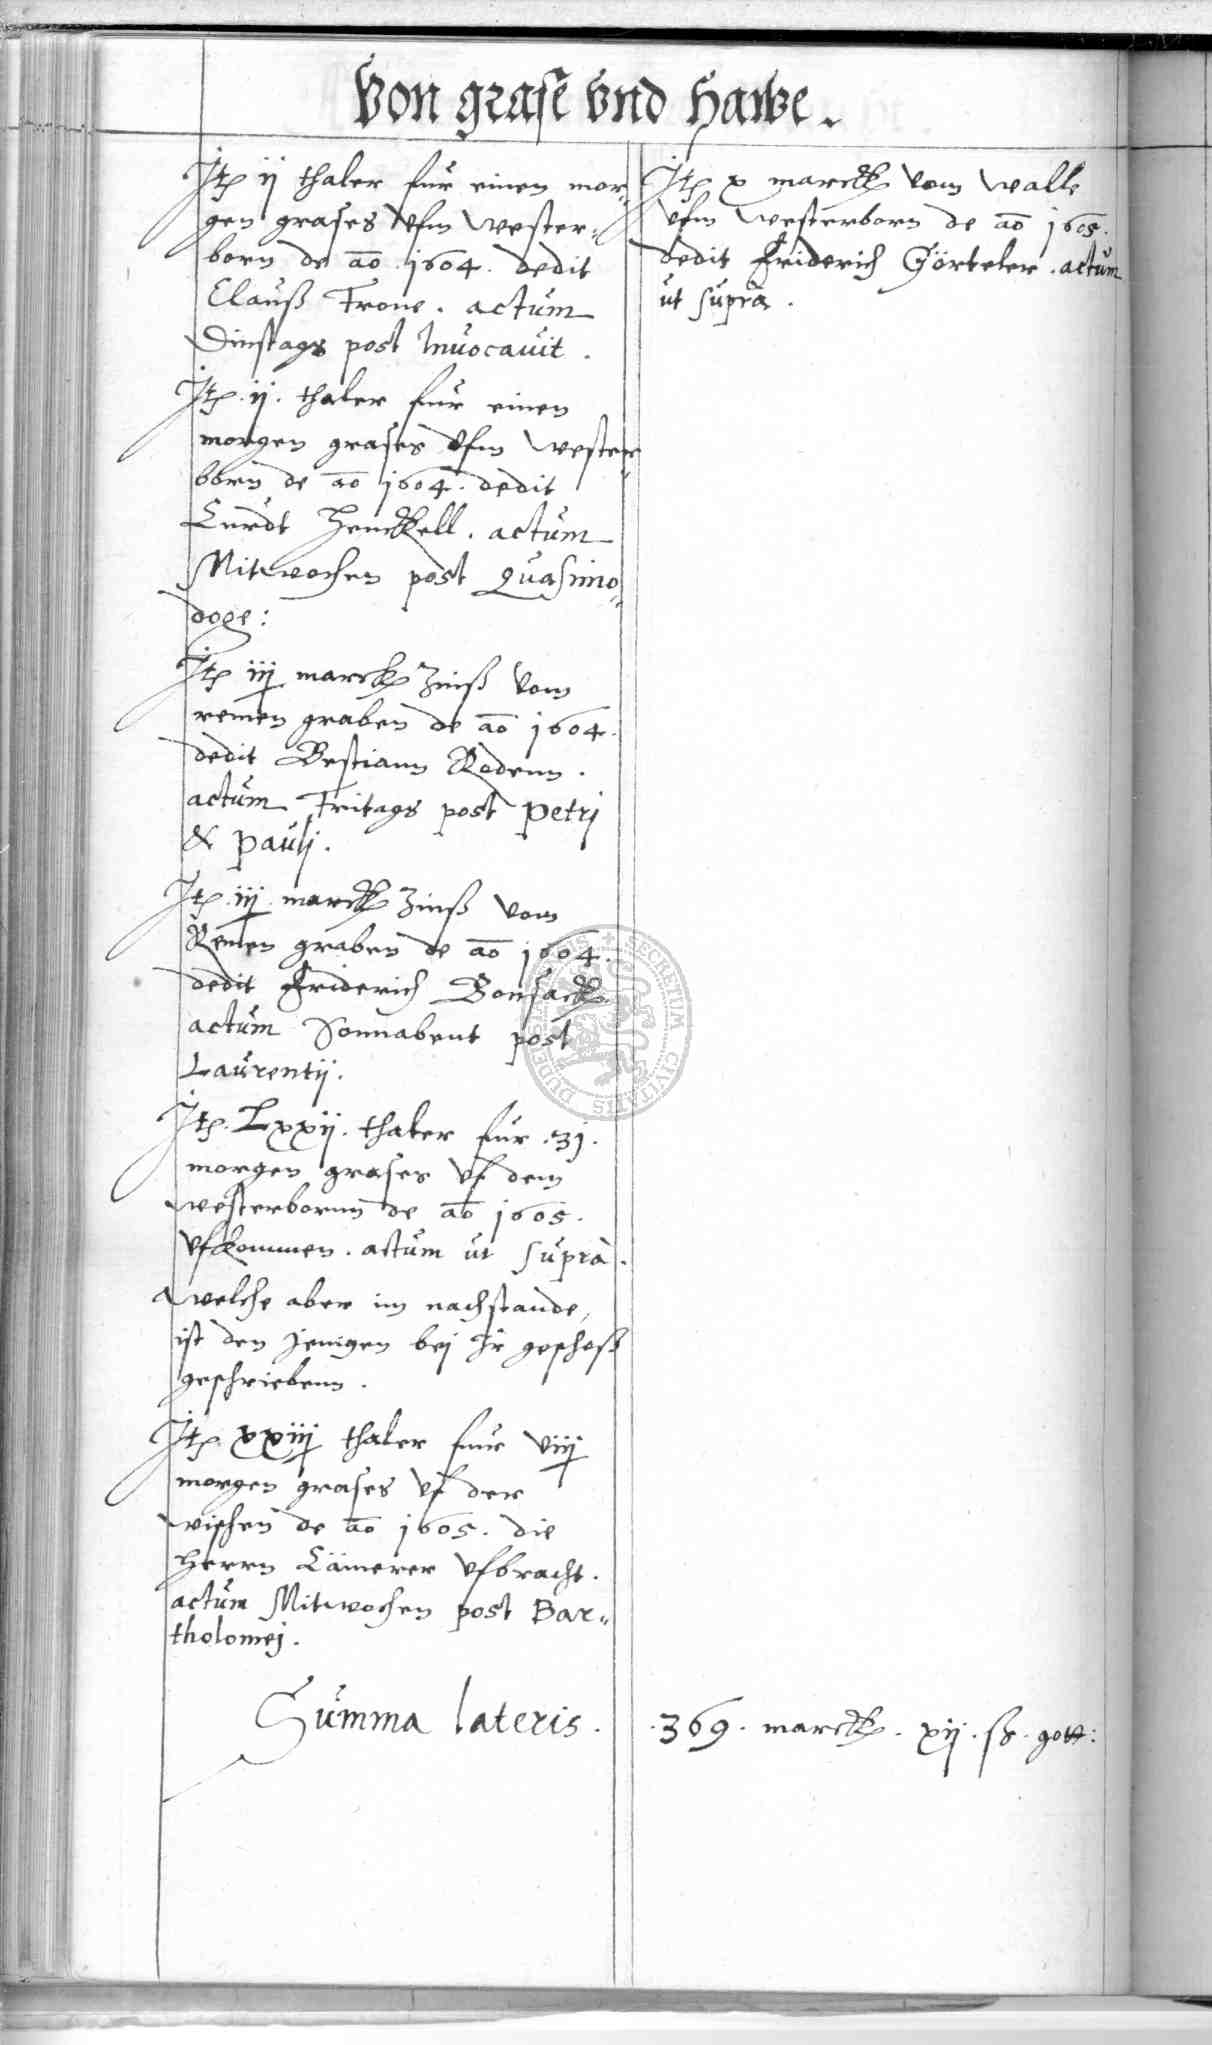 Von grase vnd Hawe.
Jtem ij thaler fur einen mor¬
gen grases vfm wester¬
born de ao 1604. dedit
Clauß Trone. actum
Dinstags post Inuocauit.
Jtem .ij. thaler fur einen
morgen grases vfm wester¬
born de ao 1604. dedit
Curdt Henckell. actum
Mitwochen post Quasimo¬
doge:
Jtem iij marck Zinß vom
remen graben de ao 1604.
dedit Bestiann Rodenn.
actum Fritags post Petrj
& Paulj.
Jtem .iij. marck Zinß vom
Remen graben de ao 1604.
dedit Friderich Bonsack.
actum Sonnabent post
Laurentij.
Jtem. Lxxij. thaler fur .31.
morgen grases vf dem
westerbornn de ao 1605.
vfkommen. actum ut supra.
welche aber im nachstande,
ist den jenigen bej Jr geschoß
geschriebenn.
Jtem xxiiij thaler fur viij
morgen grases vf der
wischen de ao 1605. die
Herrn Cämerer vfbracht.
actum Mitwochen post Bar¬
tholomej.
Jtem x marck vom walle
vfm westerborn de ao 1605.
dedit Friderich Görteler. actum
ut supra.
Summa lateris. .369. marck. xij. ß. gott:
DUDERSTADENSIS SECRETUM CIVITATIS